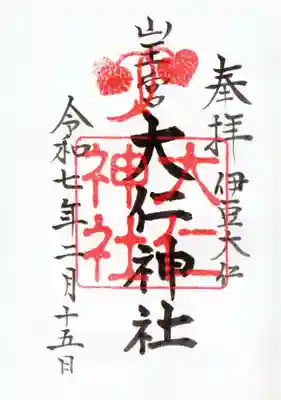 奉拝 伊豆大仁
山王宮 大仁神社
大仁神社
令和七年二月十五日